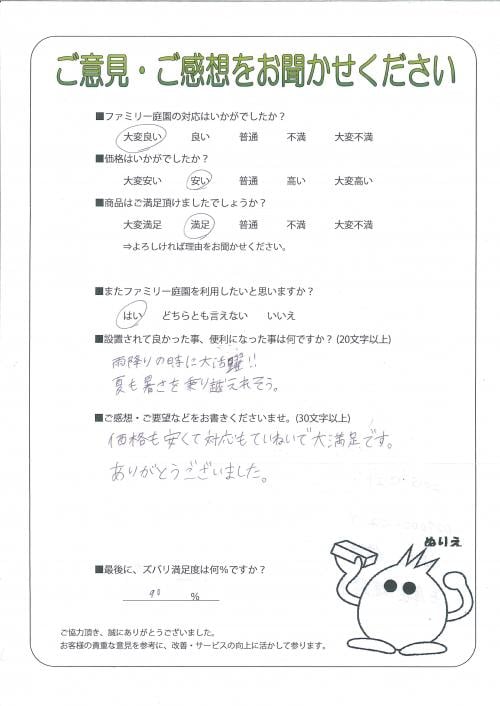 ご意見・ご感想をお聞かせください
■ファミリー庭園の対応はいかがでしたか？
大変良い 良い 普通 不満 大変不満
■価格はいかがでしたか？
大変安い 安い 普通 高い 大変高い
■商品はご満足頂けましたでしょうか？
大変満足 満足 普通 不満 大変不満
⇒よろしければ理由をお聞かせください。
■またファミリー庭園を利用したいと思いますか？
はい どちらとも言えない いいえ
■設置されて良かった事、便利になった事は何ですか？(20文字以上)
雨降りの時に大活躍!!
夏も暑さを乗り越えれそう。
■ご感想・ご要望などをお書きくださいませ。(30文字以上)
価格も安くて対応もていねいで大満足です。
ありがとうございました。
ぬりえ
■最後に、ズバリ満足度は何％ですか？
90 ％
ご協力頂き、誠にありがとうございました。
お客様の貴重な意見を参考に、改善・サービスの向上に活かして参ります。